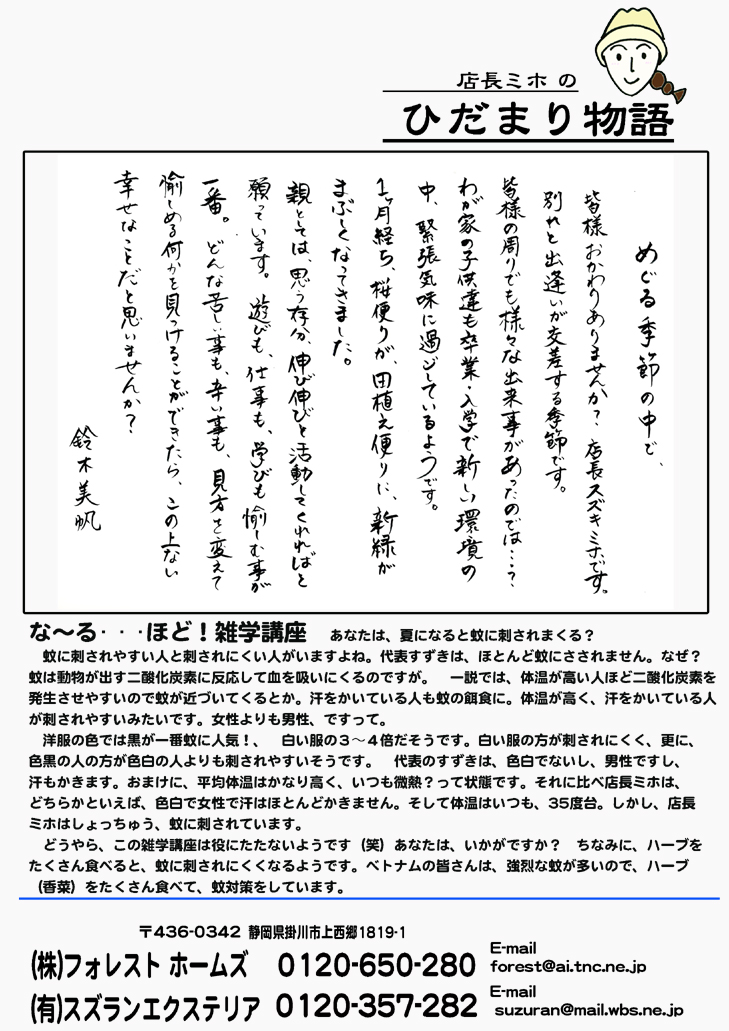 店長ミホ の
ひだまり物語
めぐる季節の中で、
皆様 おかわりありませんか？店長スズキミホです。
別れと出逢いが交差する季節です。
皆様の周りでも様々な出来事があったのでは…？
わが家の子供達も卒業・入学で新しい環境の
中、緊張気味に過ごしているようです。
1ヶ月経ち、桜便りが、田植え便りに、新緑が
まぶしくなってきました。
親としては、思う存分、伸び伸びと活動してくれればと
願っています。遊びも、仕事も、学びも愉しむ事が
一番。どんな苦しい事も、辛い事も、見方を変えて
愉しめる何かを見つけることができたら、この上ない
幸せなことだと思いませんか？
鈴木美帆
な～る・・・ほど！雑学講座　あなたは、夏になると蚊に刺されまくる？
蚊に刺されやすい人と刺されにくい人がいますよね。代表すずきは、ほとんど蚊にさされません。なぜ？
蚊は動物が出す二酸化炭素に反応して血を吸いにくるのですが。　一説では、体温が高い人ほど二酸化炭素を
発生させやすいので蚊が近づいてくるとか。汗をかいている人も蚊の餌食に。体温が高く、汗をかいている人
が刺されやすいみたいです。女性よりも男性、ですって。
洋服の色では黒が一番蚊に人気！、　白い服の３～４倍だそうです。白い服の方が刺されにくく、更に、
色黒の人の方が色白の人よりも刺されやすいそうです。　代表のすずきは、色白でないし、男性ですし、
汗もかきます。おまけに、平均体温はかなり高く、いつも微熱？って状態です。それに比べ店長ミホは、
どちらかといえば、色白で女性で汗はほとんどかきません。そして体温はいつも、35度台。しかし、店長
ミホはしょっちゅう、蚊に刺されています。
どうやら、この雑学講座は役にたたないようです（笑）あなたは、いかがですか？　ちなみに、ハーブを
たくさん食べると、蚊に刺されにくくなるようです。ベトナムの皆さんは、強烈な蚊が多いので、ハーブ
（香菜）をたくさん食べて、蚊対策をしています。
〒436-0342 静岡県掛川市上西郷1819-1
(株)フォレスト ホームズ　0120-650-280
E-mail
forest@ai.tnc.ne.jp
(有)スズランエクステリア　0120-357-282
E-mail
suzuran@mail.wbs.ne.jp